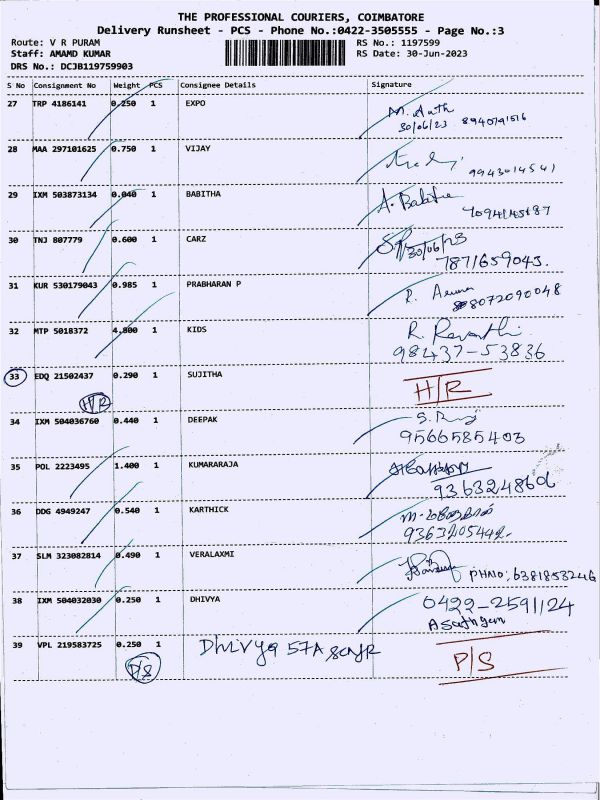 THE PROFESSIONAL COURIERS, COIMBATORE
Delivery Runsheet - PCS - Phone No.:0422-3505555 - Page No.:3
Route: V R PURAM RS No.: 1197599
Staff: AMAMD KUMAR RS Date: 30-Jun-2023
DRS No.: DCJB119759903
S No Consignment No Weight PCS Consignee Details Signature
27 TRP 4186141 0.250 1 EXPO
30/06/23 8940791516
28 MAA 297101625 0.750 1 VIJAY
9943014541
29 IXM 503873134 0.040 1 BABITHA A. Babitha
7094145187
30 TNJ 807779 0.600 1 CARZ 30/06/23
7871659043.
31 KUR 530179043 0.985 1 PRABHARAN P
8072090048
32 MTP 5018372 4.800 1 KIDS R. Revathi
98437-53836
33 EDQ 21502437 0.290 1 SUJITHA H/R
H/R
34 IXM 504036760 0.440 1 DEEPAK
9566585403
35 POL 2223495 1.400 1 KUMARARAJA
9363248606
36 DDG 4949247 0.540 1 KARTHICK
9363205442.
37 SLM 323082814 0.490 1 VERALAXMI
PHNO: 6381853246
38 IXM 504032030 0.250 1 DHIVYA 0422-2591124
39 VPL 219583725 0.250 1 Dhivya 57A P/S
P/S